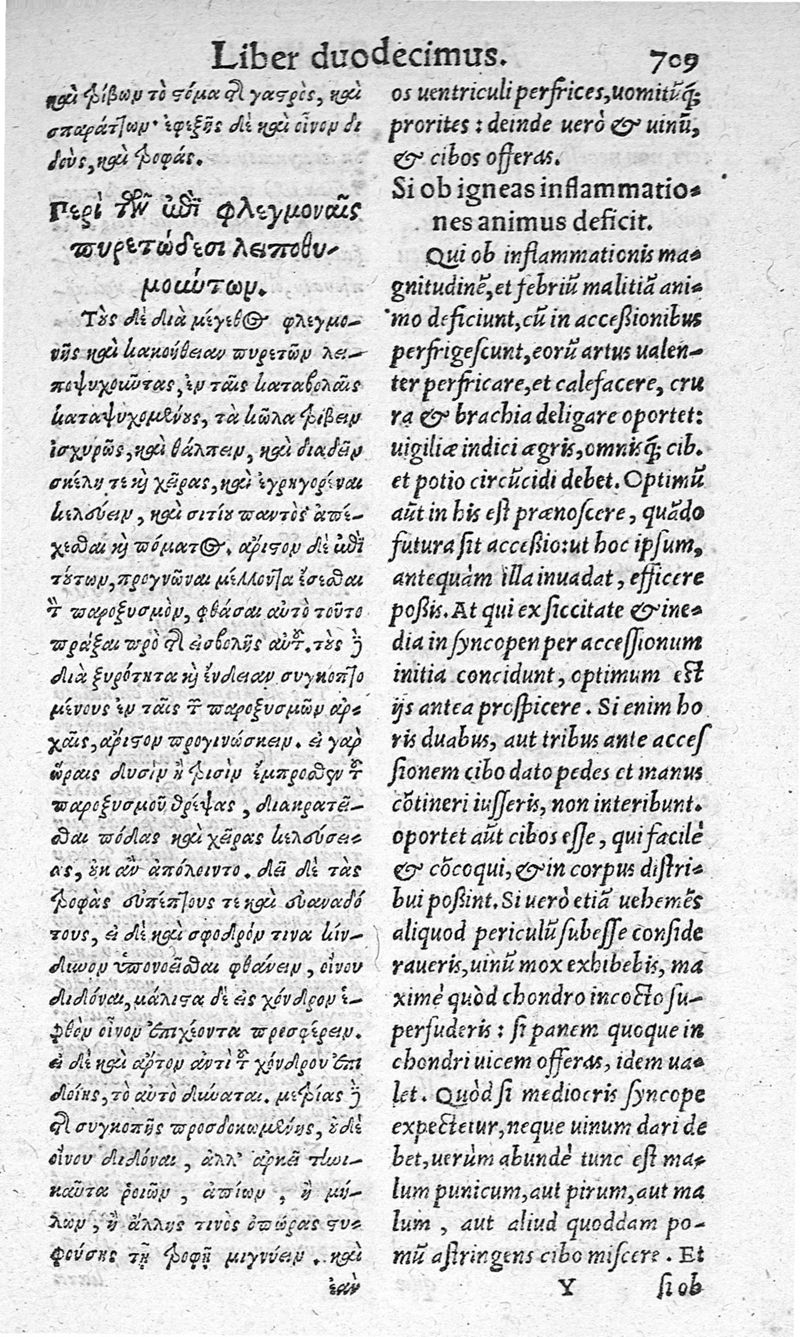 Liber duodecimus. 709
καὶ τρίβων τὸ στόμα τῆς γαστρὸς, καὶ
σπαράττων· ἐφεξῆς δὲ καὶ οἶνον δι
δοὺς, καὶ τροφάς.
Περὶ τῶν ἐπὶ φλεγμοναῖς
πυρετώδεσι λειποθυ-
μούντων.
Τοὺς δὲ διὰ μέγεθος φλεγμο-
νῆς καὶ κακοήθειαν πυρετῶν λει-
ποψυχοῦντας, ἐν ταῖς καταβολαῖς
καταψυχομένους, τὰ κῶλα τρίβειν
ἰσχυρῶς, καὶ θάλπειν, καὶ διαδεῖν
σκέλη τε καὶ χεῖρας, καὶ ἐγρηγορέναι
κελεύειν, καὶ σιτίου παντὸς ἀπέ-
χεσθαι καὶ πόματος. ἄριστον δὲ ἐπὶ
τούτων, προγνῶναι μέλλοντα ἔσεσθαι
τὸν παροξυσμὸν, φθάσαι αὐτὸ τοῦτο
πρᾶξαι πρὸ τῆς εἰσβολῆς αὐτοῦ. τοὺς δὲ
διὰ ξηρότητα καὶ ἔνδειαν συγκοπτο
μένους ἐν ταῖς τῶν παροξυσμῶν ἀρ-
χαῖς, ἄριστον προγινώσκειν. εἰ γὰρ
ὥραις δυσὶν ἢ τρισὶν ἔμπροσθεν τοῦ
παροξυσμοῦ θρέψας, διακρατεῖ-
σθαι πόδας καὶ χεῖρας κελεύσει-
ας, οὐκ ἂν ἀπόλοιντο. δεῖ δὲ τὰς
τροφὰς εὐπέπτους τε καὶ εὐαναδό
τους, εἰ δὲ καὶ σφοδρόν τινα κίν-
δυνον ὑπονοεῖσθαι φθάνειν, οἴνου
διδόναι, μάλιστα δὲ εἰς χόνδρον ἑ-
φθὸν οἶνον ἐπιχέοντα προσφέρειν.
εἰ δὲ καὶ ἄρτον ἀντὶ τοῦ χόνδρου ἐπι
δοίης, τὸ αὐτὸ δύναται. μετρίας δὲ
τῆς συγκοπῆς προσδοκωμένης, οὐδὲ
οἴνου διδόναι, ἀλλ' ἀρκεῖ τηνι-
καῦτα ῥοιῶν, ἀπίων, ἢ μή-
λων, ἢ ἄλλης τινὸς ὀπώρας στυ-
φούσης τῇ τροφῇ μιγνύειν. καὶ
ἐὰν
os uentriculi perfrices, uomitūq;
prorites: deinde uerò & uinū,
& cibos offeras.
Si ob igneas inflammatio-
nes animus deficit.
Qui ob inflammationis ma-
gnitudinē, et febriū malitiā ani-
mo deficiunt, cū in accessionibus
perfrigescunt, eorū artus ualen-
ter perfricare, et calefacere, cru
ra & brachia deligare oportet:
uigiliæ indici ægris, omnisq; cib.
et potio circūcidi debet. Optimū
aūt in his est prænoscere, quādo
futura sit accessio: ut hoc ipsum,
antequàm illa inuadat, efficere
possis. At qui ex siccitate & ine-
dia in syncopen per accessionum
initia concidunt, optimum est
ijs antea prospicere. Si enim ho
ris duabus, aut tribus ante acces
sionem cibo dato pedes et manus
cōtineri iusseris, non interibunt.
oportet aūt cibos esse, qui facilè
& cōcoqui, & in corpus distri-
bui possint. Si uerò etiā uehemēs
aliquod periculū subesse conside
raueris, uinū mox exhibebis, ma
ximè quòd chondro incocto su-
perfuderis: si panem quoque in
chondri uicem offeras, idem ua-
let. Quòd si mediocris syncope
expectetur, neque uinum dari de
bet, uerùm abundè tunc est ma-
lum punicum, aut pirum, aut ma
lum, aut aliud quoddam po-
mū astringens cibo miscere. Et
Y si ob